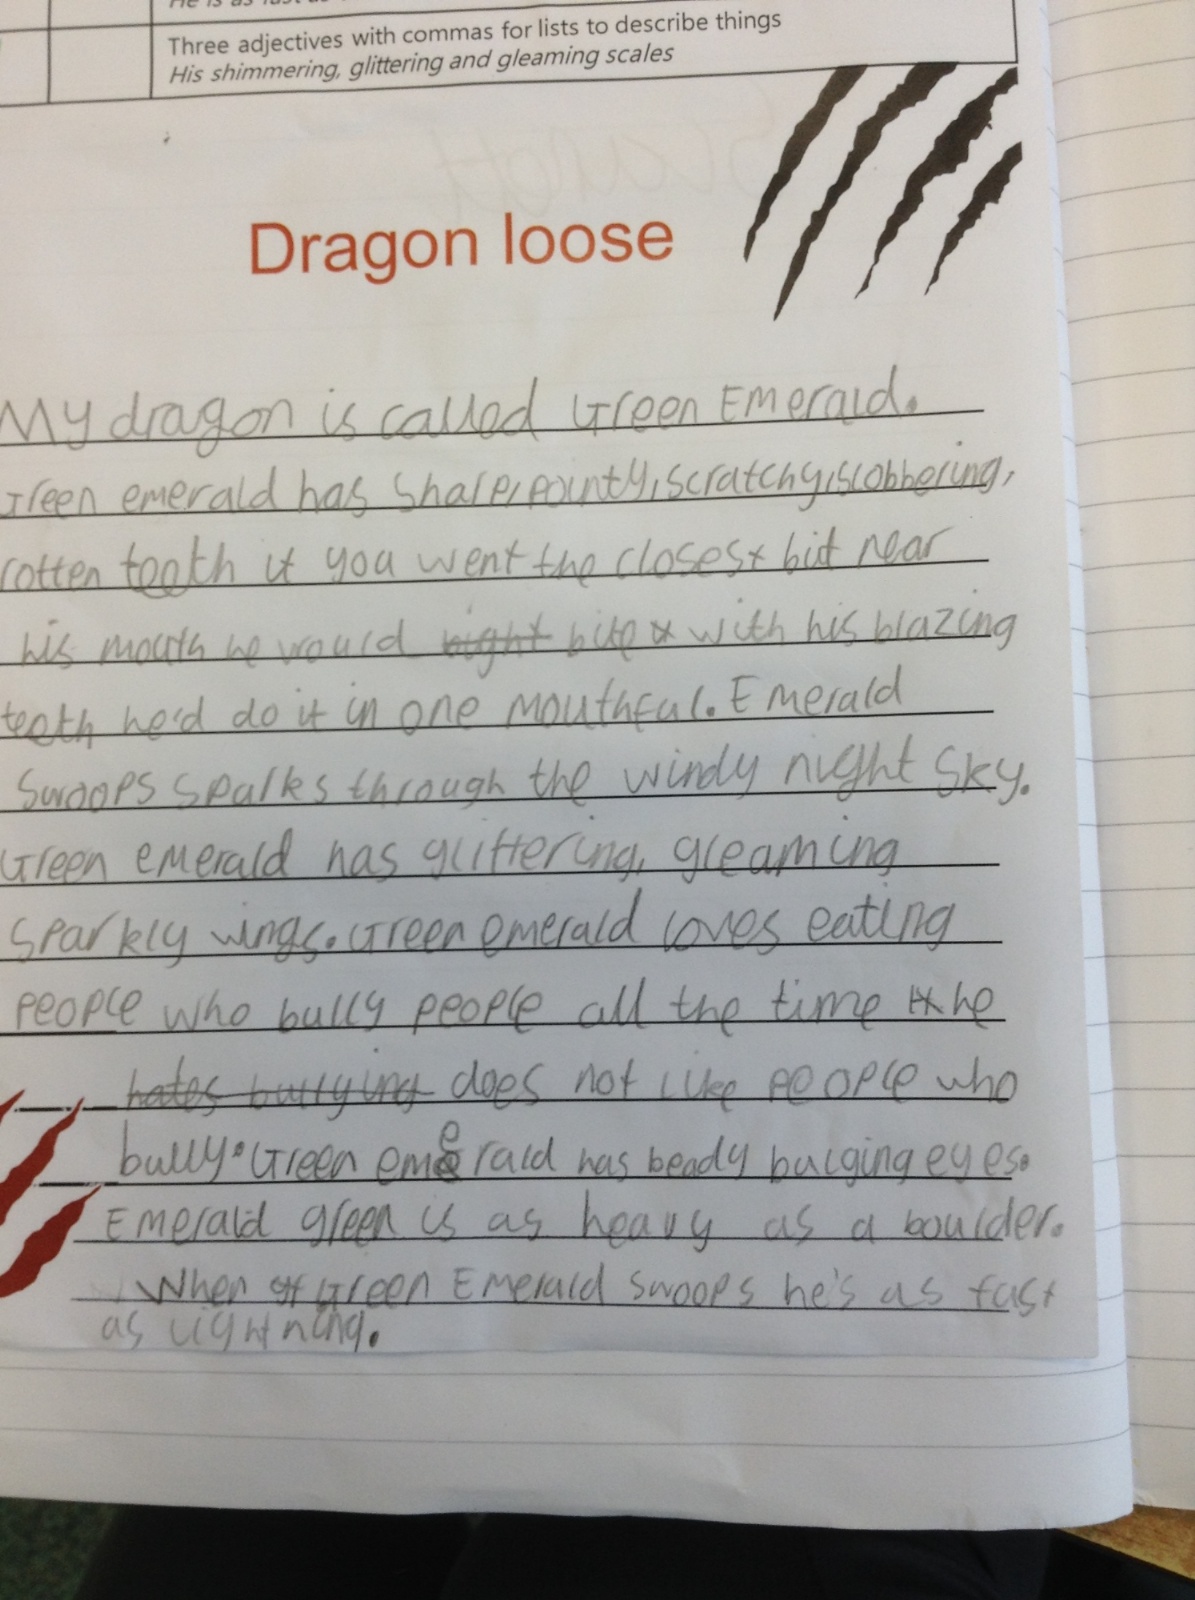 Three adjectives with commas for lists to describe things
His shimmering, glittering and gleaming scales
Dragon loose
My dragon is called Green Emerald.
Green emerald has sharp, pointy, scratchy, slobbering,
rotten teeth if you went the closest bit near
his mouth he would bite with his blazing
teeth he'd do it in one mouthful. Emerald
swoops sparks through the windy night sky.
Green emerald has glittering, gleaming
sparkly wings. Green emerald loves eating
people who bully people all the time he
hates bullying does not like people who
bully. Green emerald has beady bulging eyes.
Emerald green is as heavy as a boulder.
When Green Emerald swoops he's as fast
as lightning.